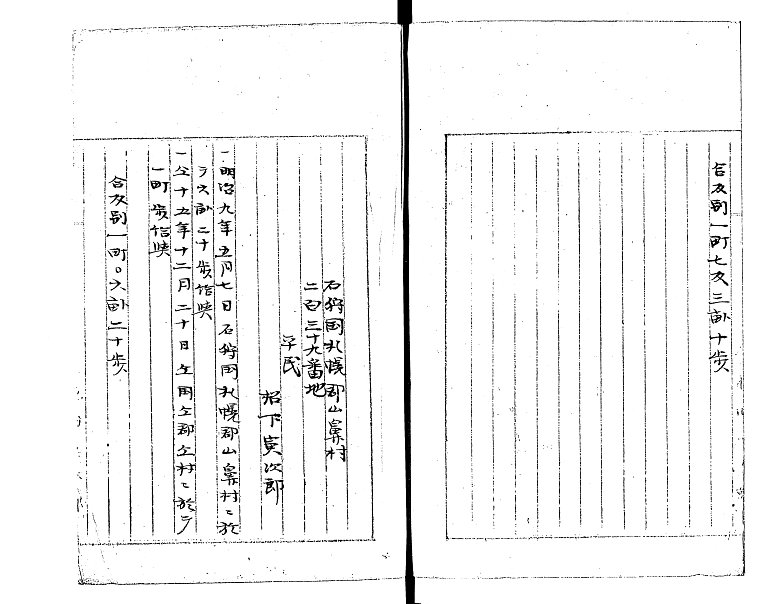 合反別一町七反三畝十歩
石狩国札幌郡山鼻村
二百三十九番地
平民
松下寅次郎
一明治九年五月七日石狩国札幌郡山鼻村ニ於
テ六畝二十歩給与
一仝十五年十二月二十日仝国仝郡仝村ニ於テ
一町歩給与
合反別一町〇六畝二十歩